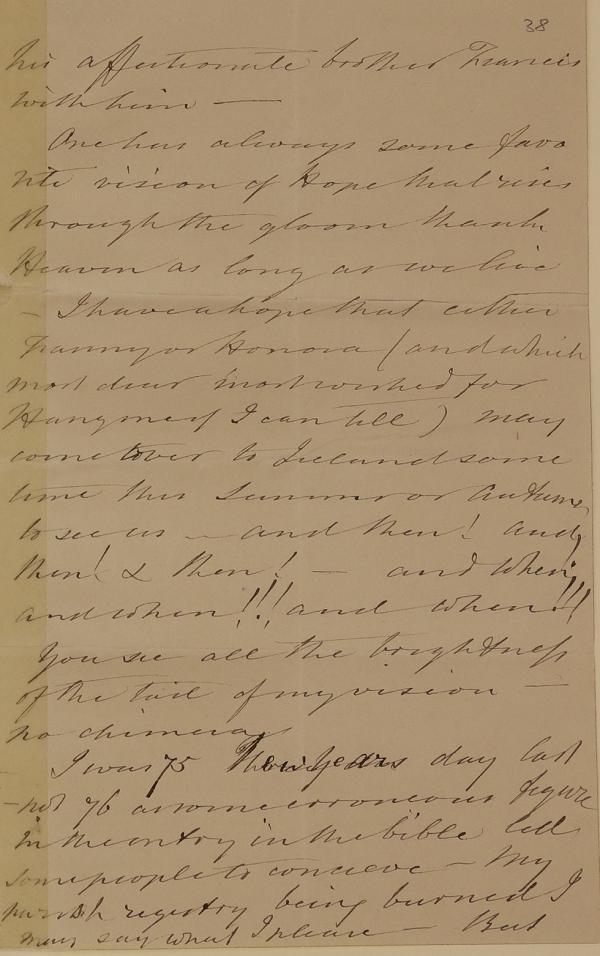 38
his affectionate brother Francis
with him —
One has always some favo
rite vision of Hope that rises
through the gloom thank
Heaven as long as we live
— I have a hope that either
Fanny or Honora (and which
most dear most wished for
Hang me if I can tell) may
come over to Ireland some
time this Summer or Autumn
to see us — and then! and
then! & then! — and when
and when!!! and when!!!
You see all the brightness
of the tail of my vision —
no chimera
I was 75 New Years day last
— not 76 as some erroneous figure
in the entry in the bible led
some people to conceive — My
parish registry being burned I
may say what I please — But